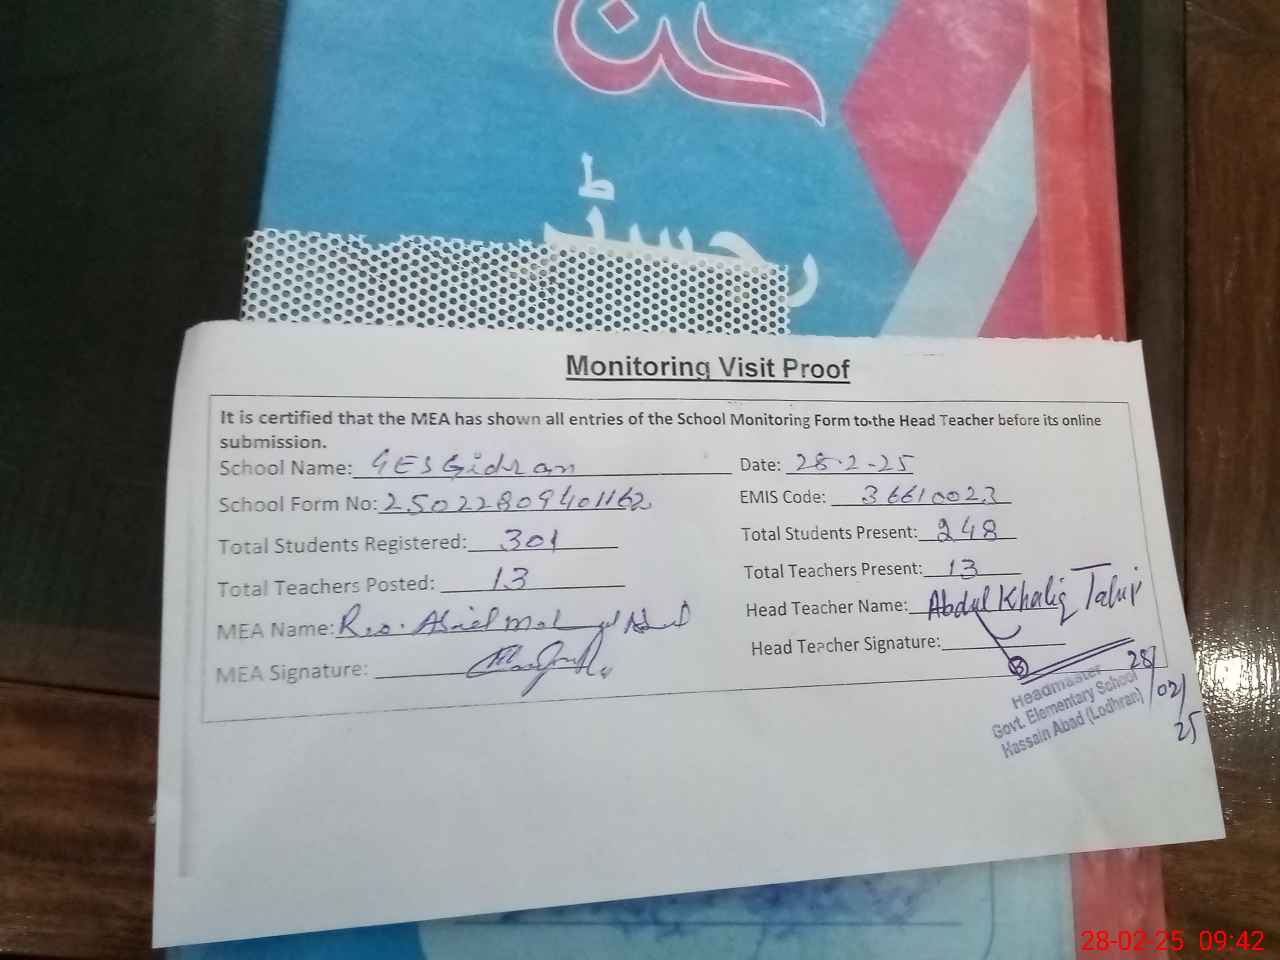 رجسٹر
Monitoring Visit Proof
It is certified that the MEA has shown all entries of the School Monitoring Form to the Head Teacher before its online
submission.
School Name: GES Gidran Date: 28-2-25
School Form No: 25022809401162 EMIS Code: 36610023
Total Students Registered: 301 Total Students Present: 248
Total Teachers Posted: 13 Total Teachers Present: 13
MEA Name: Head Teacher Name: Abdul Khaliq Tahir
MEA Signature: Head Teacher Signature:
28/02/25
Headmaster
Govt. Elementary School
Hassain Abad (Lodhran)
28-02-25 09:42